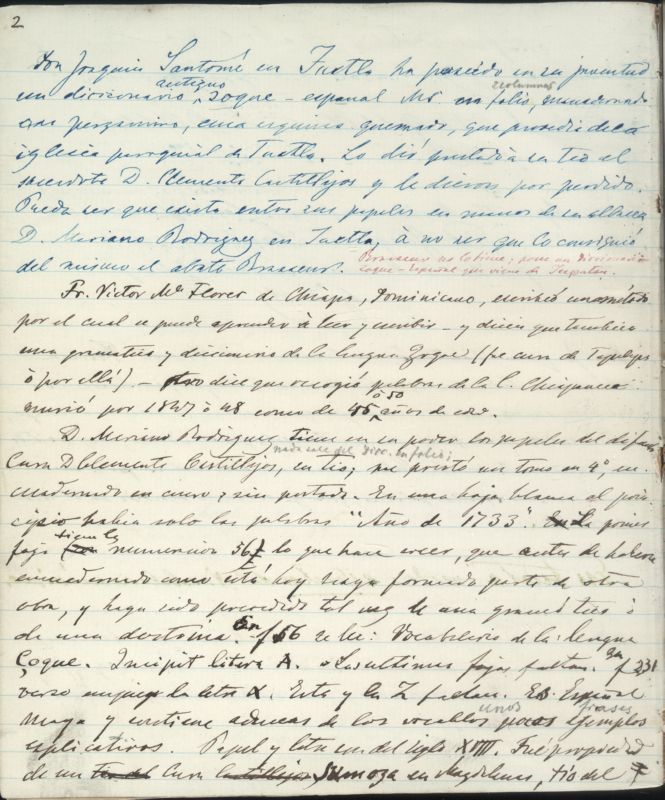 2
Don Joaquin Santomé en Tuxtla ha poseido en su juventud
antiguo 2 columnas
un diccionario zoque - español Ms. en folio, encuadernado
en pergamino, esquina quemado, que procedia de la
iglesia parroquial de Tuxtla. Lo dió prestado a su tio el
sacerdote D. Clemente Castillejos y le dieron por perdido.
Puede ser que exista entre sus papeles en manos de su albacea
D. Mariano Rodriguez en Tuxtla, à no ser que lo consiguió
del mismo el abate Brasseur. Brasseur no lo tiene; pone un Diccionario
zoque - español que viene de Tecpatan.
Fr. Victor Ma. Flores de Chiapa, Dominicano, escribió un método
por el cual se puede aprender à leer y escribir - y dicen que tambien
una gramatica y diccionario de la lengua Zoque (fue cura de
ò por allá). - dice que recogió palabras de la l. Chiapaneca
ò 50
murió por 1847 ò 48 como de 45 años de edad.
D. Mariano Rodriguez tiene en su poder los papeles del difunto
nada sabe del Dicc. in folio;
Cura D Clemente Castillejos, su tio; me prestó un tomo en 4°, en-
cuadernado en cuero y sin portada. En una hoja blanca al prin-
cipio habia solo las palabras "Año de 1733". La primer
tiene la
foja numeracion 56, lo que hace creer, que antes de haberse
encuadernado como está hoy haya formado parte de otra
obra, y haya sido precedido tal vez de una gramática ò
de una doctrina. En f 56 se lee: Vocabulario de la lengua
Çoque. Incipit litera A. Las ultimas fojas faltan. En f 231
verso empieza la letra X. Esta y la Z faltan. Es Español
unos frases
Zoque y contiene ademas de los vocablos pocos ejemplos
esplicativos. Papel y letra son del siglo XVIII. Fué propiedad
de un Cura en Magdalenas, tio del